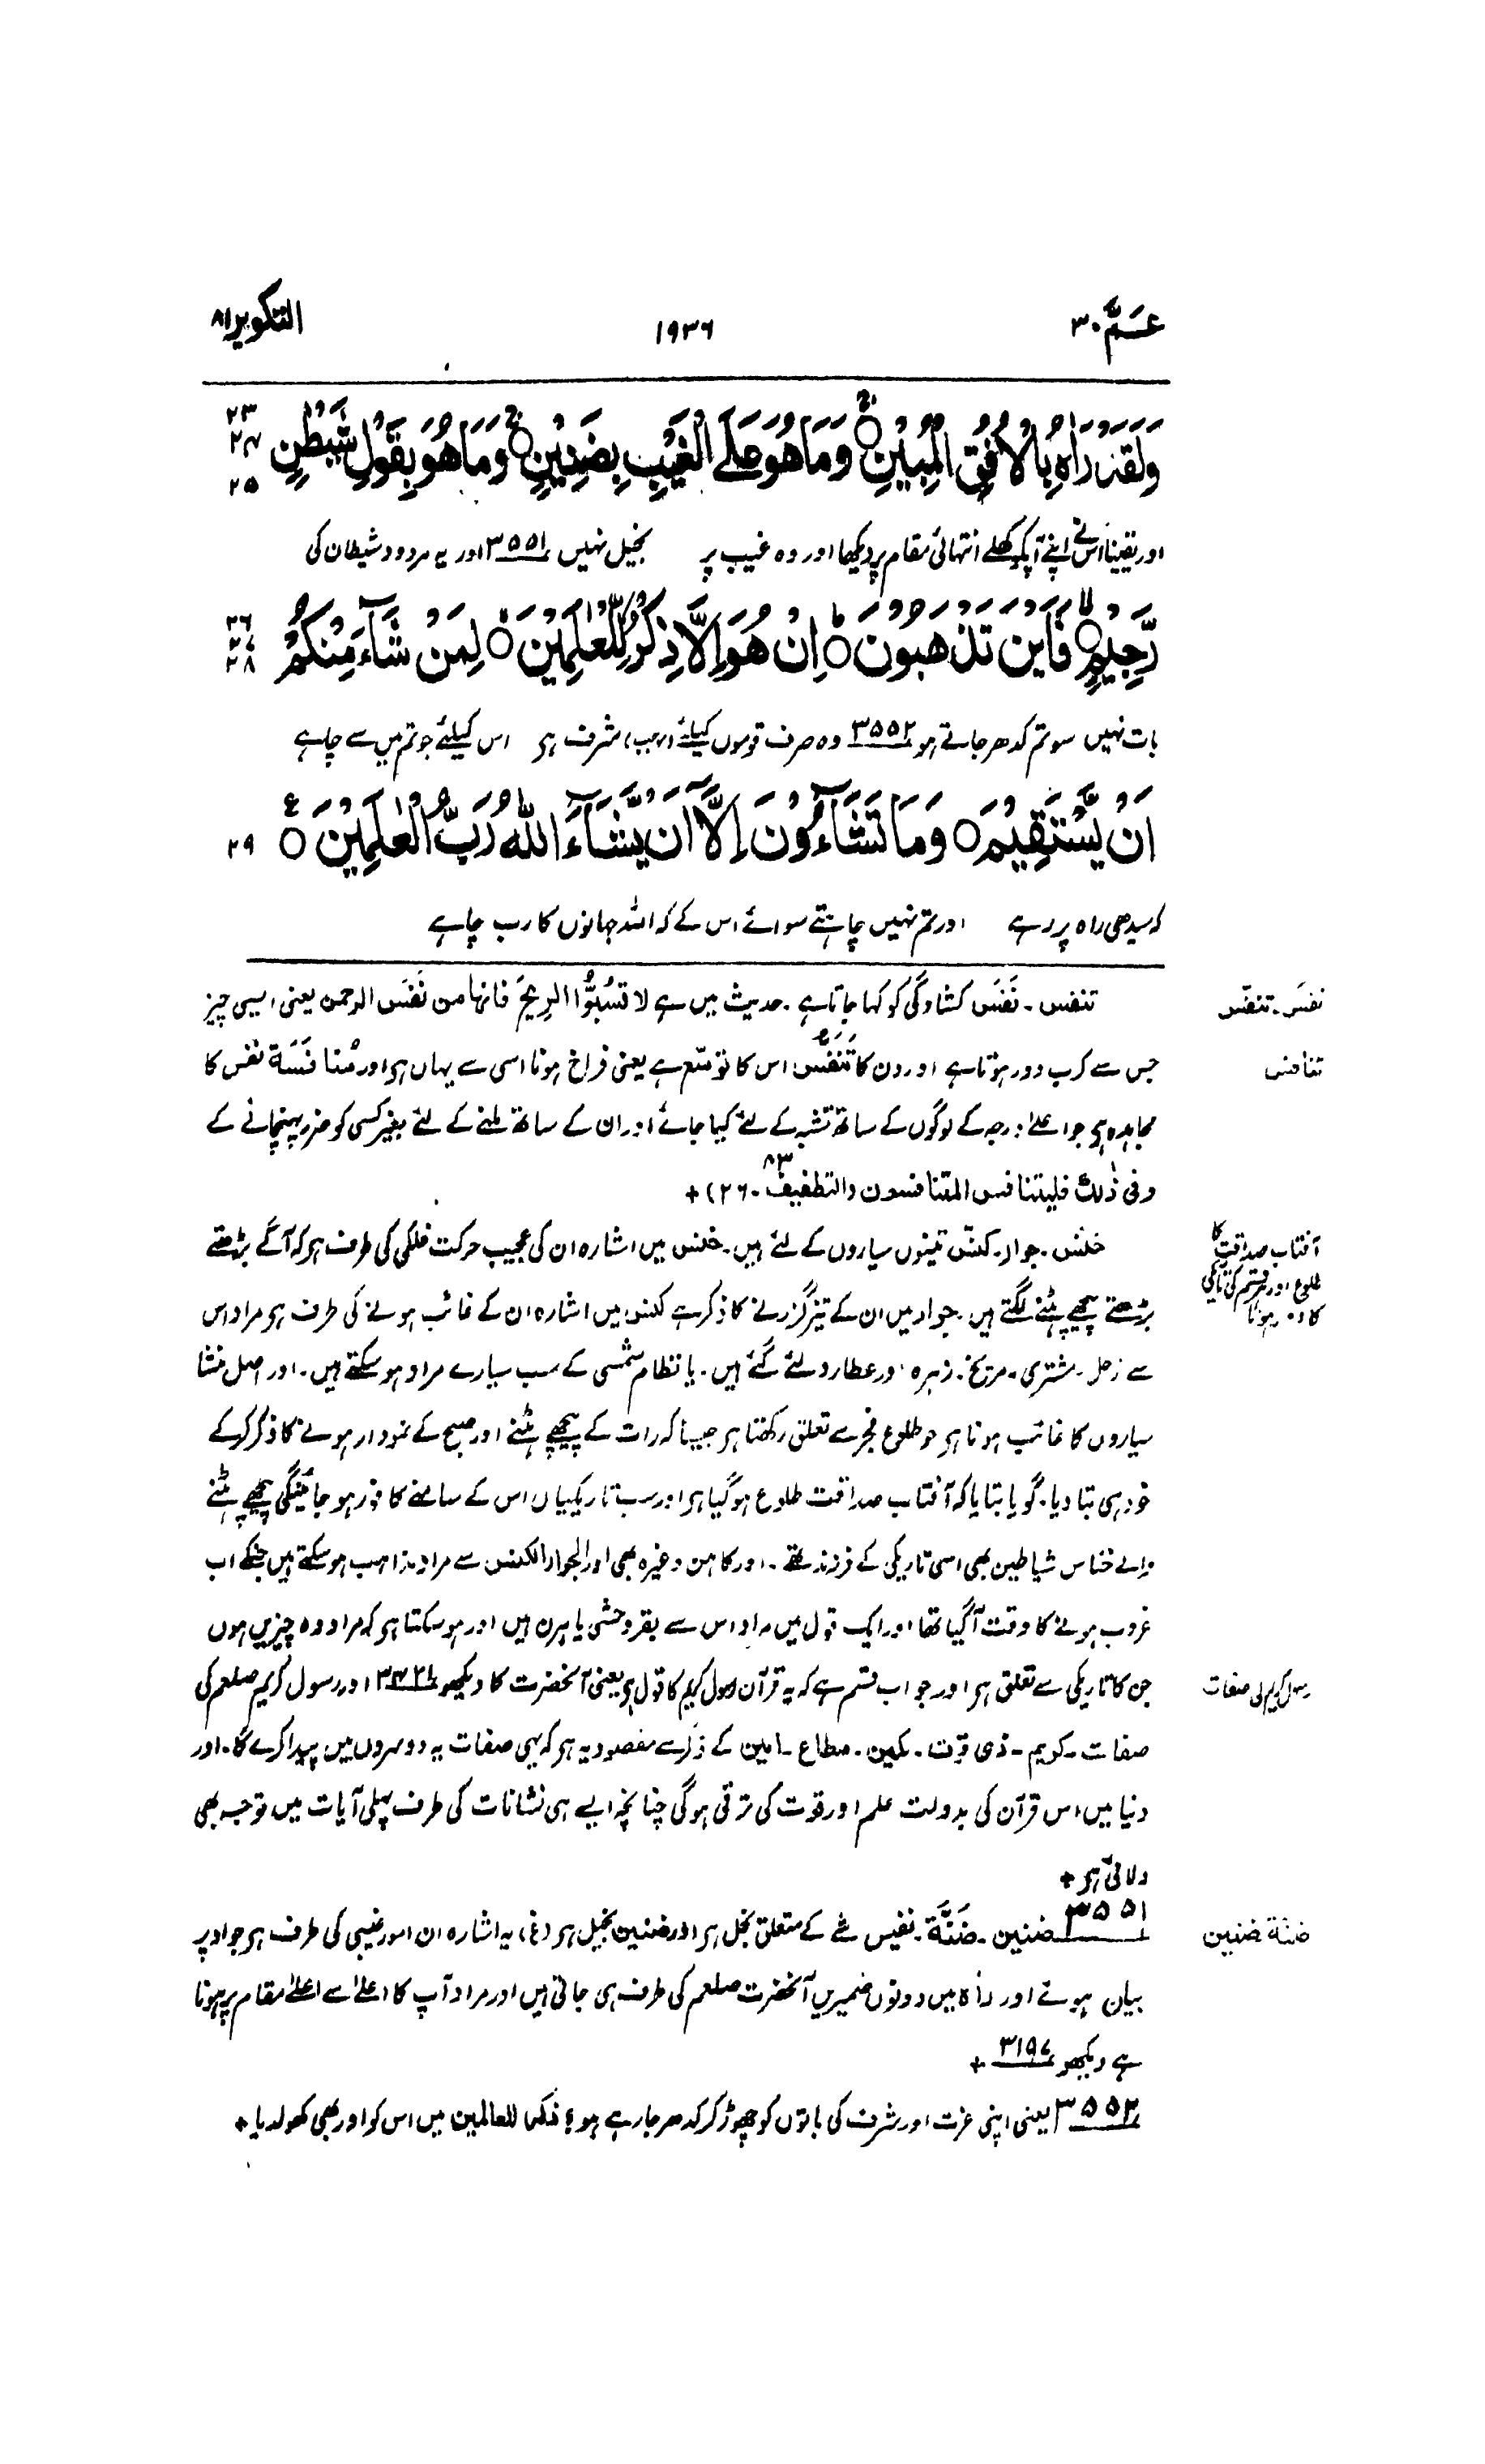 عـمّ ٣٠
١٩٣٦
التکویر ٨١
وَلَقَدْ رَاٰهُ بِالْاُفُقِ الْمُبِيْنِ ۚ وَمَا هُوَ عَلَى الْغَيْبِ بِضَنِيْنٍ ۚ وَمَا هُوَ بِقَوْلِ شَيْطٰنٍ
٢٣
٢٤
٢٥
اور یقیناً اس نے اپنے آپکو کھلے انتہائی مقام پر دیکھا اور وہ غیب پر بخیل نہیں ٣٥٥١ اور یہ مردود شیطان کی
رَّجِيْمٍ ۙ فَاَيْنَ تَذْهَبُوْنَ ؕ اِنْ هُوَ اِلَّا ذِكْرٌ لِّلْعٰلَمِيْنَ ۙ لِمَنْ شَآءَ مِنْكُمْ
٢٦
٢٧
٢٨
بات نہیں سو تم کدھر جاتے ہو ٣٥٥٢ وہ صرف قوموں کیلئے (موجب) شرف ہے اس کیلئے جو تم میں سے چاہے
اَنْ يَّسْتَقِيْمَ ؕ وَمَا تَشَآءُوْنَ اِلَّآ اَنْ يَّشَآءَ اللّٰهُ رَبُّ الْعٰلَمِيْنَ ۠
٢٩
کہ سیدھی راہ پر رہے اور تم نہیں چاہتے سوائے اس کے کہ اللہ جہانوں کا رب چاہے
نفَس۔ تنفّس
تنفس۔ نَفَس کشادگی کو کہا جاتا ہے۔ حدیث میں ہے لا تسُبُّوا الریحَ فانها من نَفَس الرحمن یعنی ایسی چیز
تنافس
جس سے کرب دور ہوتا ہے اور دن کا تَنَفُّس اس کا توسّع ہے یعنی فراخ ہونا اسی سے یہاں ہے اور مُنافَسَة نفس کا
مجاہدہ ہے جو اعلےٰ درجہ کے لوگوں کے ساتھ تشبہ کے لئے کیا جائے اور ان کے ساتھ ملنے کے لئے بغیر کسی کو ضرر پہنچانے کے
وفی ذٰلك فلیتنافس المتنافسون (التطفیف ٨٣۔ ٢٦) +
آفتاب صداقت کا
طلوع اور ہر قسم کی تاریکی
کا دور ہونا
خنّس۔ جوار۔ کنّس تینوں سیاروں کے لئے ہیں۔ خنس میں اشارہ ان کی عجیب حرکت فلکی کی طرف ہے کہ آگے بڑھتے
بڑھتے پیچھے ہٹنے لگتے ہیں۔ جوار میں ان کے تیز گزرنے کا ذکر ہے کنس میں اشارہ ان کے غائب ہونے کی طرف ہے مراد اس
سے زحل۔ مشتری۔ مریخ۔ زہرہ اور عطارد لئے گئے ہیں۔ یا نظام شمسی کے سب سیارے مراد ہو سکتے ہیں۔ اور اصل منشا
سیاروں کا غائب ہونا ہے جو طلوع فجر سے تعلق رکھتا ہے جیسا کہ رات کے پیچھے ہٹنے اور صبح کے نمودار ہونے کا ذکر کرکے
خود ہی بتا دیا۔ گویا بتایا کہ آفتاب صداقت طلوع ہو گیا ہے اور سب تاریکیاں اس کے سامنے کافور ہو جائینگی پیچھے ہٹنے
والے خناس شیاطین بھی اسی تاریکی کے فرزند تھے۔ اور کاہن وغیرہ بھی اور الجوار الکنس سے مراد مذاہب ہو سکتے ہیں جنکے اب
غروب ہونے کا وقت آ گیا تھا اور ایک قول میں مراد اس سے بقر وحشی یا ہرن ہیں اور ہو سکتا ہے کہ مراد وہ چیزیں ہوں
رسول کریم کی صفات
جن کا تاریکی سے تعلق ہے اور جواب قسم ہے کہ یہ قرآن رسول کریم کا قول ہے یعنی آنحضرت کا دیکھو ٣٤٢١ اور رسول کریم صلعم کی
صفات۔ کریم۔ ذی قوّت۔ مکین۔ مطاع۔ امین کے ذکر سے مقصود یہ ہے کہ یہی صفات یہ دوسروں میں پیدا کرے گا۔ اور
دنیا میں اس قرآن کی بدولت علم اور قوت کی ترقی ہوگی چنانچہ ایسے ہی نشانات کی طرف پہلی آیات میں توجہ بھی
دلائی ہے +
ضنّة ضنین
٣٥٥١ ضنین۔ ضَنَّة۔ نفیس شے کے متعلق بخل ہے اور ضنین بخیل ہے (غ) یہ اشارہ ان امور غیبی کی طرف ہے جو اوپر
بیان ہوئے اور رأہ میں دونوں ضمیریں آنحضرت صلعم کی طرف ہی جاتی ہیں اور مراد آپ کا اعلےٰ سے اعلےٰ مقام پر ہونا
ہے دیکھو ٣١٩٧ +
٣٥٥٢ یعنی اپنی عزت اور شرف کی باتوں کو چھوڑ کر کدھر جا رہے ہو؟ ذکر للعالمین میں اس کو اور بھی کھولدیا +